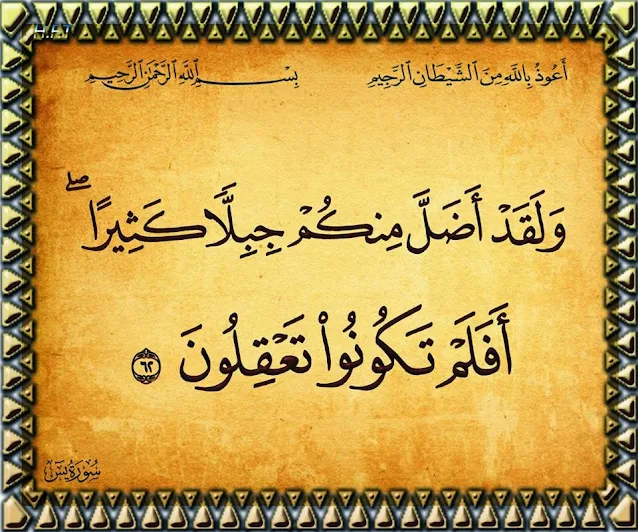 H.F1
أَعُوذُ بِاللَّهِ مِنَ ٱلشَّيْطَانِ ٱلرَّجِيمِ بِسْمِ ٱللَّهِ ٱلرَّحْمَٰنِ ٱلرَّحِيمِ
وَلَقَدْ أَضَلَّ مِنكُمْ جِبِلًّا كَثِيرًا ۖ
أَفَلَمْ تَكُونُوا۟ تَعْقِلُونَ ٦٢
سُورَةُ يسٓ